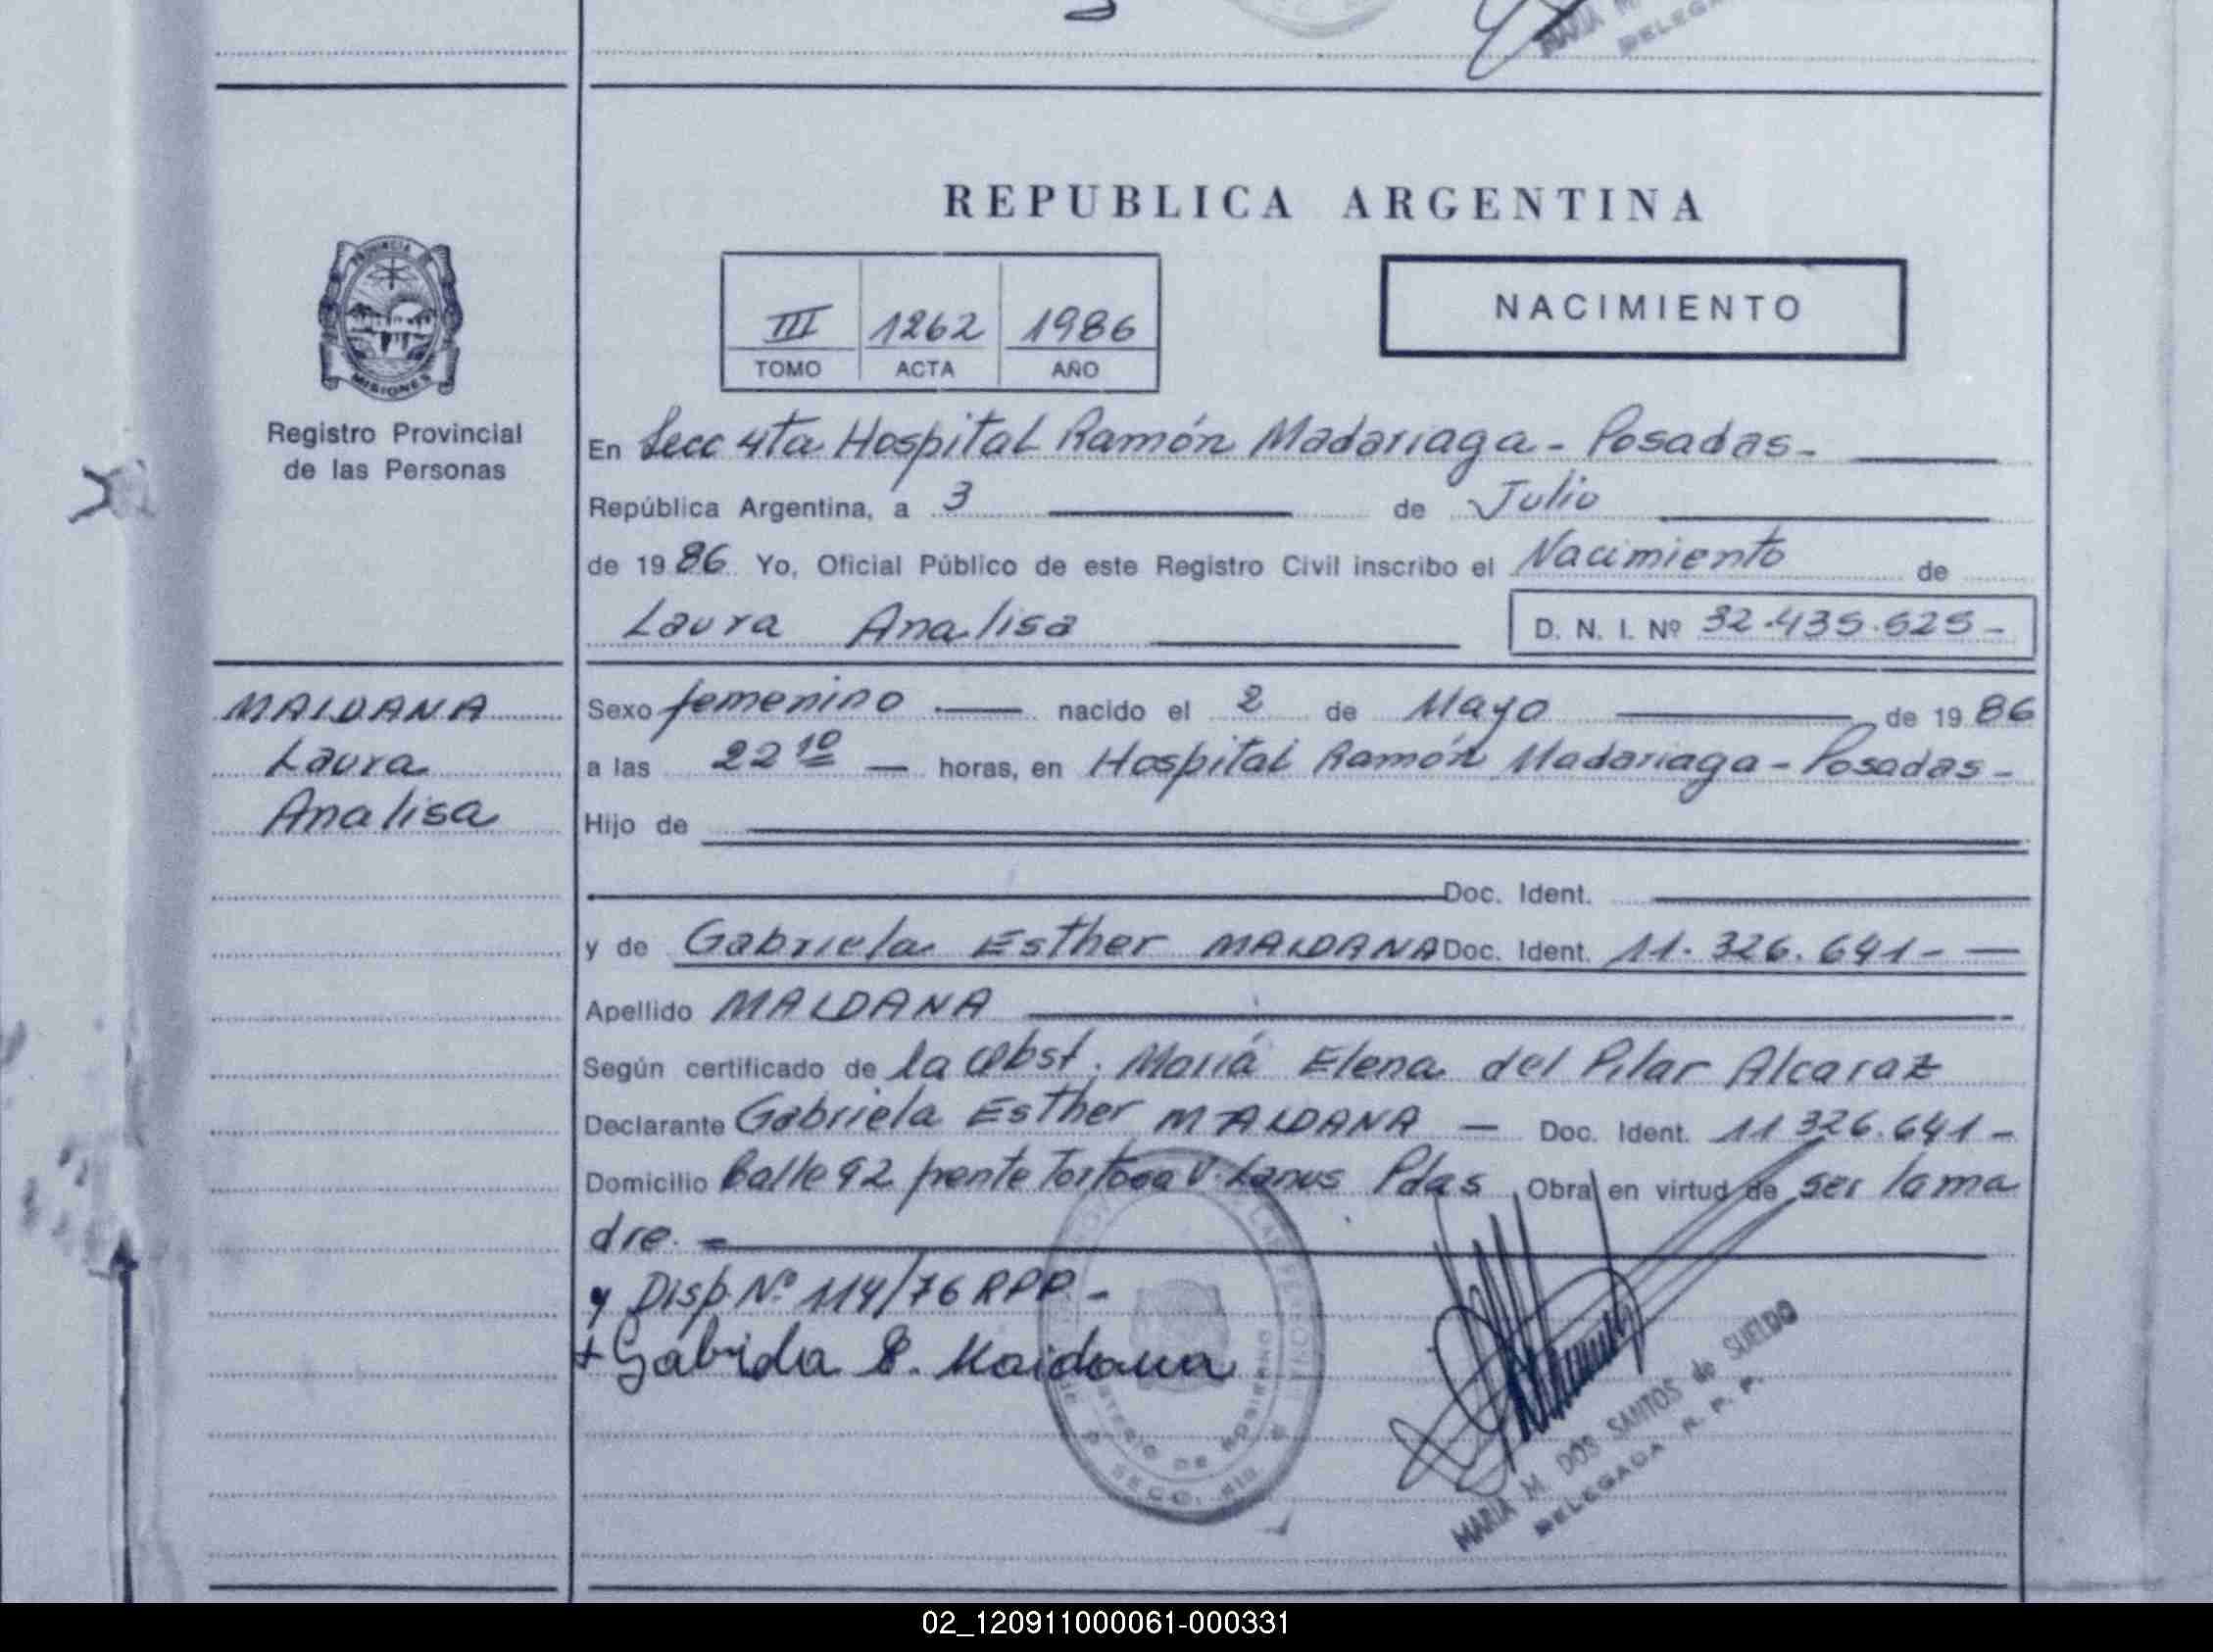 MARIA M
DELEGA
REPUBLICA ARGENTINA
PROVINCIA DE
MISIONES
III 1262 1986
TOMO ACTA AÑO
NACIMIENTO
Registro Provincial
de las Personas
En Secc 4ta Hospital Ramón Madariaga - Posadas -
República Argentina, a 3 de Julio
de 1986 Yo, Oficial Público de este Registro Civil inscribo el Nacimiento de
Laura Analisa D. N. I. Nº 32.435.625 -
MALDANA
Laura
Analisa
Sexo femenino — nacido el 2 de Mayo de 1986
a las 22 10 — horas, en Hospital Ramón Madariaga - Posadas -
Hijo de
Doc. Ident.
y de Gabriela Esther MALDANA Doc. Ident. 11.326.641 - —
Apellido MALDANA
Según certificado de la Obst. María Elena del Pilar Alcaraz
Declarante Gabriela Esther MALDANA — Doc. Ident. 11 326.641 -
Domicilio Calle 92 frente Tortosa V. Lanus Pdas Obra en virtud de ser la ma
dre. -
y Disp. Nº 114/76 RPP. -
+ Gabriela E. Maidana
MARIA M. DOS SANTOS de SUELDO
DELEGADA R. P. P.
02_120911000061-000331